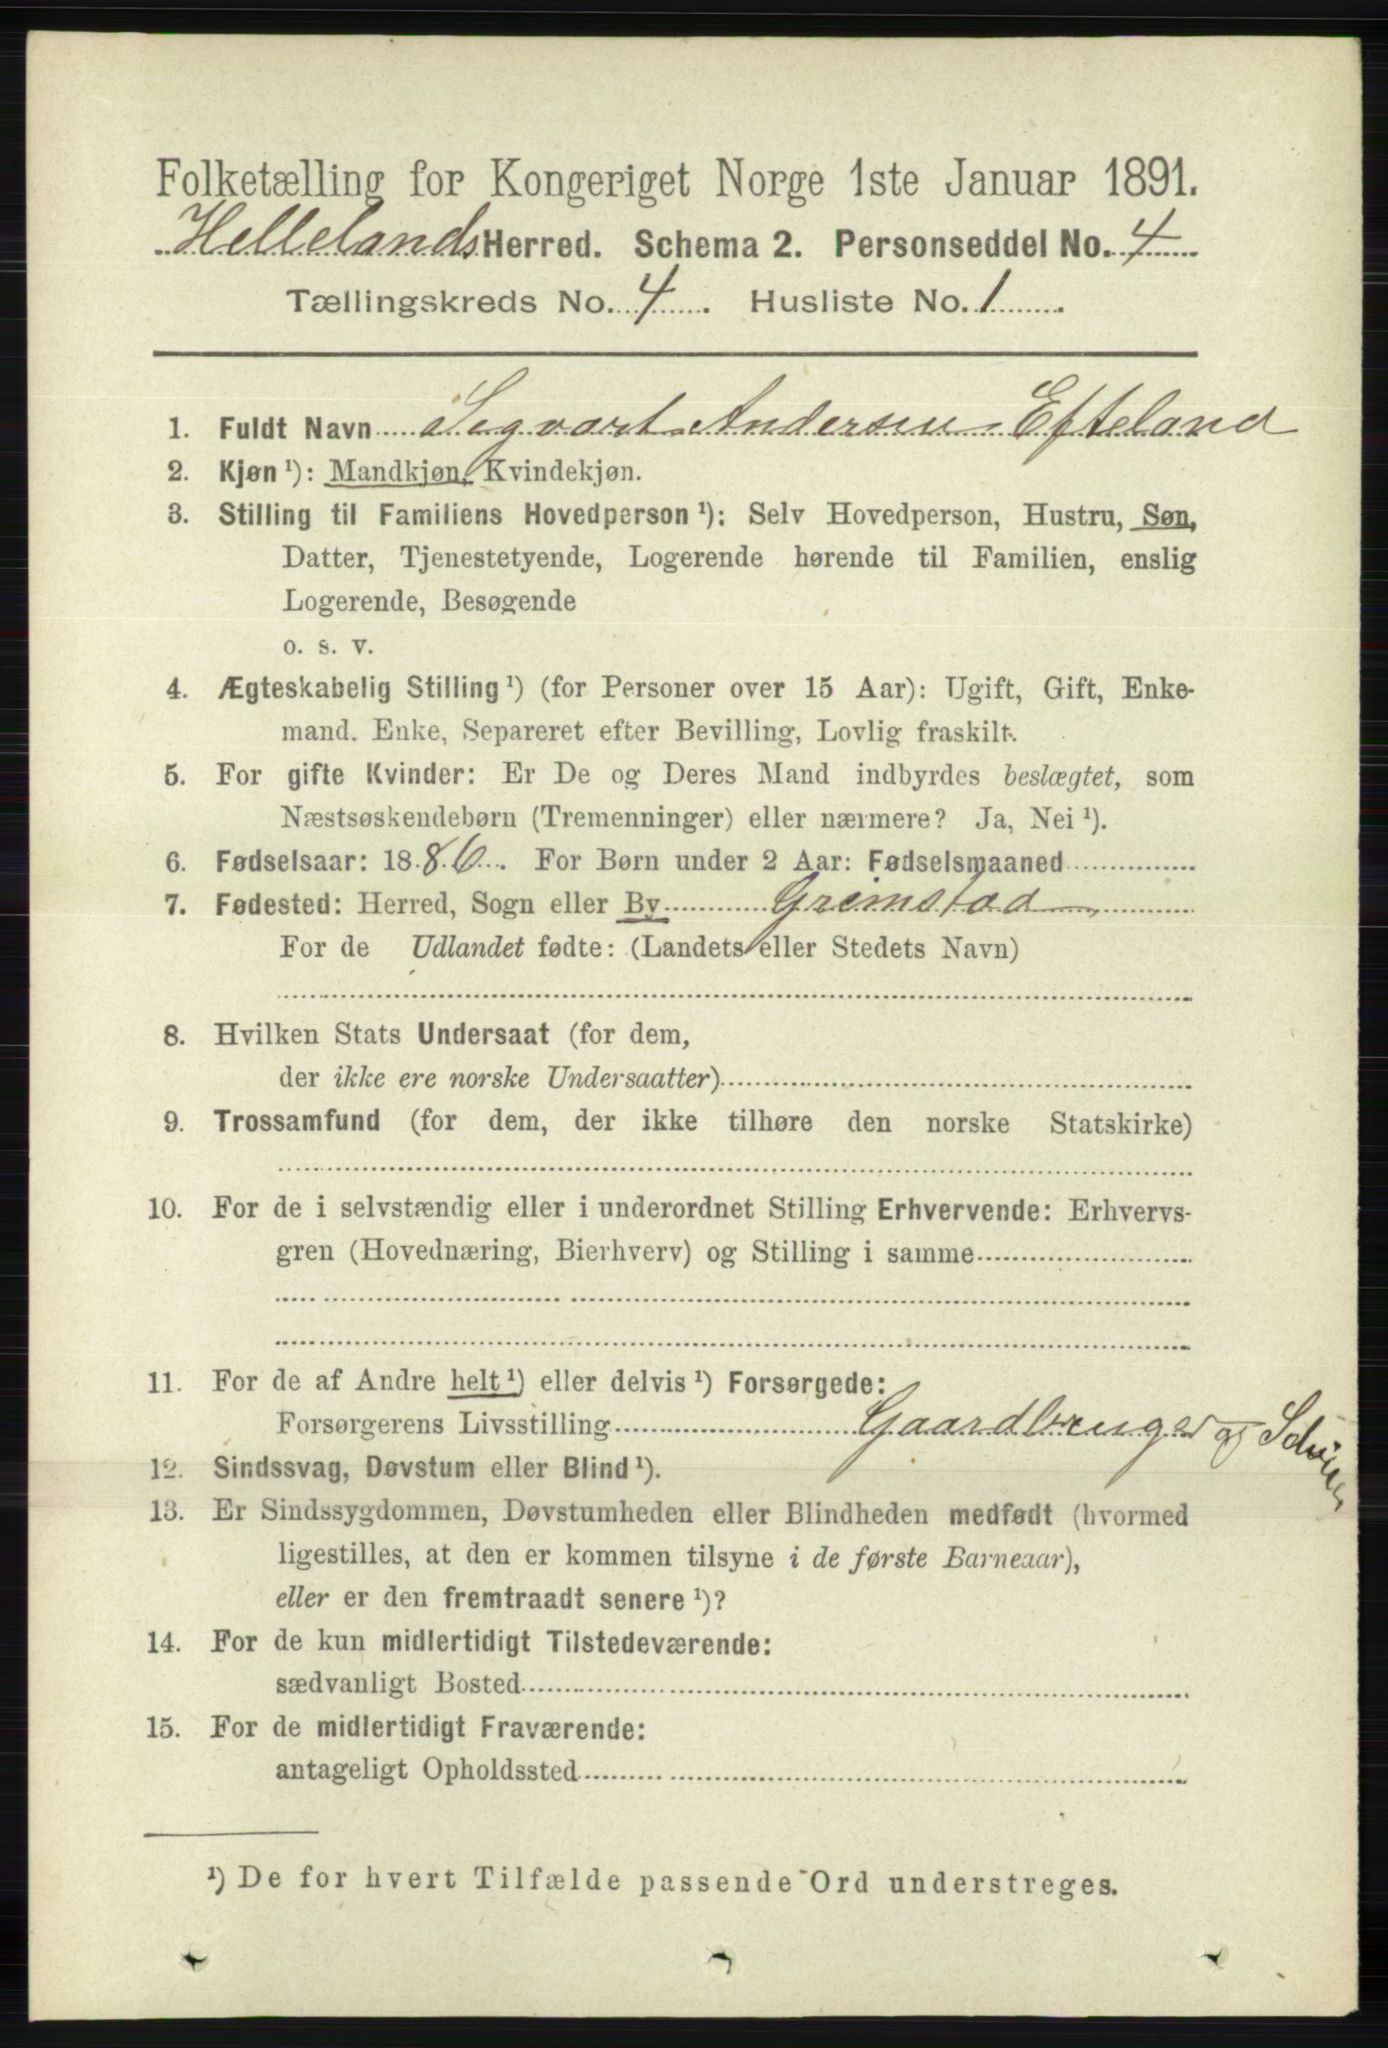 Folketælling for Kongeriget Norge 1ste Januar 1891.
Hellelands Herred. Schema 2. Personseddel No. 4
Tællingskreds No. 4. Husliste No. 1.
1. Fuldt Navn Segvart Andersen Efteland
2. Kjøn ¹): Mandkjøn, Kvindekjøn.
3. Stilling til Familiens Hovedperson ¹): Selv Hovedperson, Hustru, Søn,
Datter, Tjenestetyende, Logerende hørende til Familien, enslig
Logerende, Besøgende
o. s. v.
4. Ægteskabelig Stilling ¹) (for Personer over 15 Aar): Ugift, Gift, Enke-
mand. Enke, Separeret efter Bevilling, Lovlig fraskilt.
5. For gifte Kvinder: Er De og Deres Mand indbyrdes beslægtet, som
Næstsøskendebørn (Tremenninger) eller nærmere? Ja, Nei ¹).
6. Fødselsaar: 1886. For Børn under 2 Aar: Fødselsmaaned
7. Fødested: Herred, Sogn eller By Grimstad
For de Udlandet fødte: (Landets eller Stedets Navn)
8. Hvilken Stats Undersaat (for dem,
der ikke ere norske Undersaatter)
9. Trossamfund (for dem, der ikke tilhøre den norske Statskirke)
10. For de i selvstændig eller i underordnet Stilling Erhvervende: Erhvervs-
gren (Hovednæring, Bierhverv) og Stilling i samme
11. For de af Andre helt ¹) eller delvis ¹) Forsørgede:
Forsørgerens Livsstilling Gaardbruger og
12. Sindssvag, Døvstum eller Blind ¹).
13. Er Sindssygdommen, Døvstumheden eller Blindheden medfødt (hvormed
ligestilles, at den er kommen tilsyne i de første Barneaar),
eller er den fremtraadt senere ¹)?
14. For de kun midlertidigt Tilstedeværende:
sædvanligt Bosted
15. For de midlertidigt Fraværende:
antageligt Opholdssted
¹) De for hvert Tilfælde passende Ord understreges.